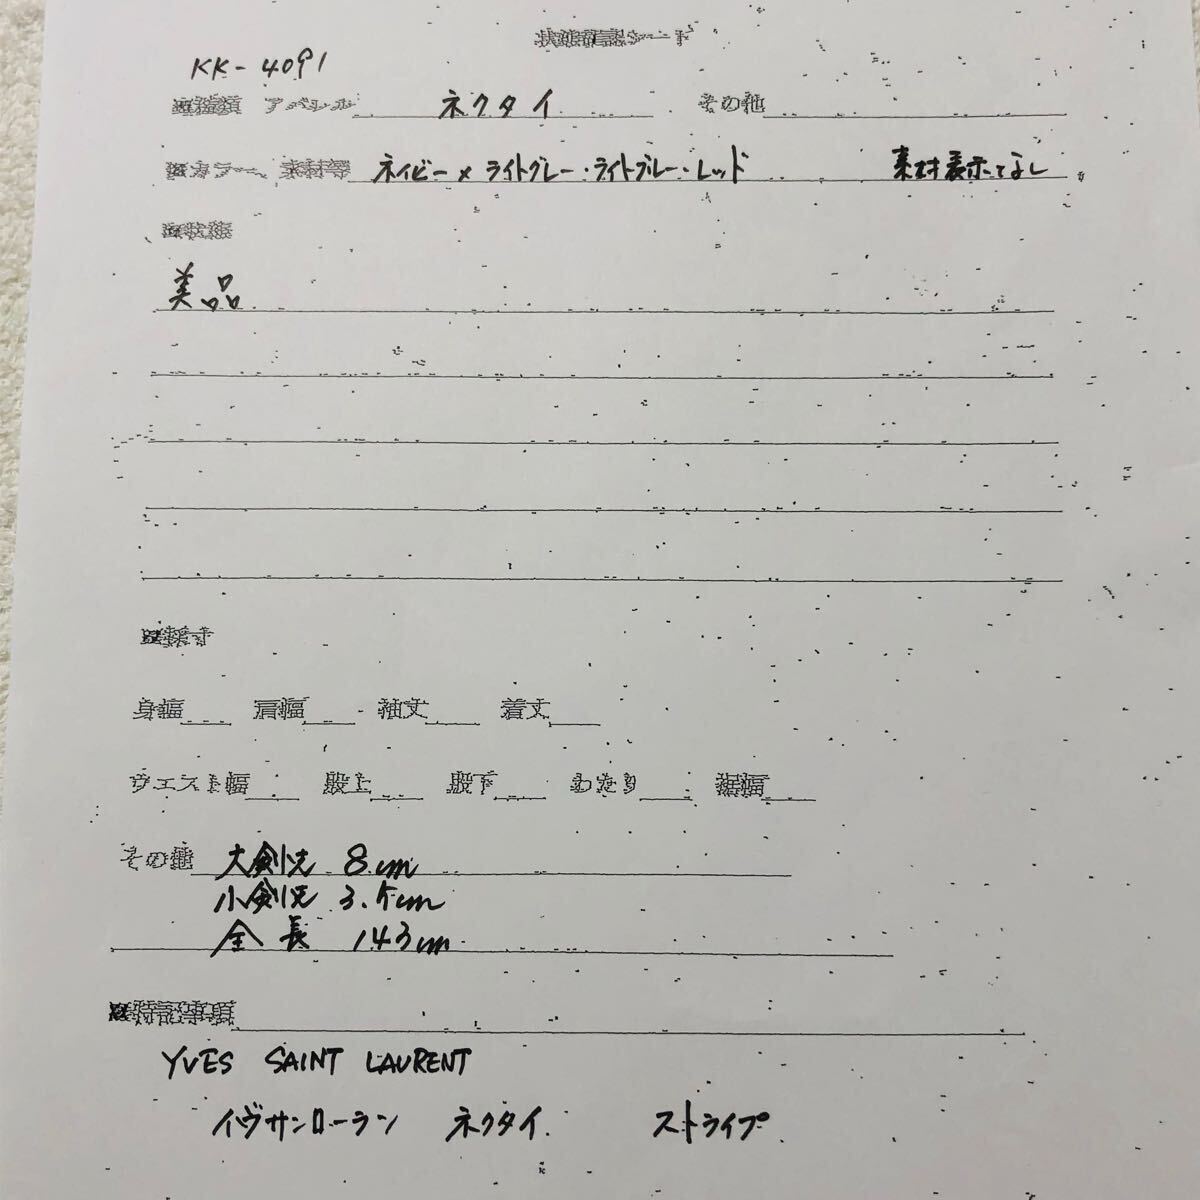 状態確認シート
KK-4091
■種類 アパレル ネクタイ その他
■カラー、素材等 ネイビー×ライトグレー・ライトブルー・レッド 素材表示なし
■状態
美品
■採寸
身幅 肩幅 袖丈 着丈
ウエスト幅 股上 股下 わたり 裾幅
その他 大剣先 8cm
小剣先 3.5cm
全長 143cm
■特記事項
YVES SAINT LAURENT
イヴサンローラン ネクタイ ストライプ